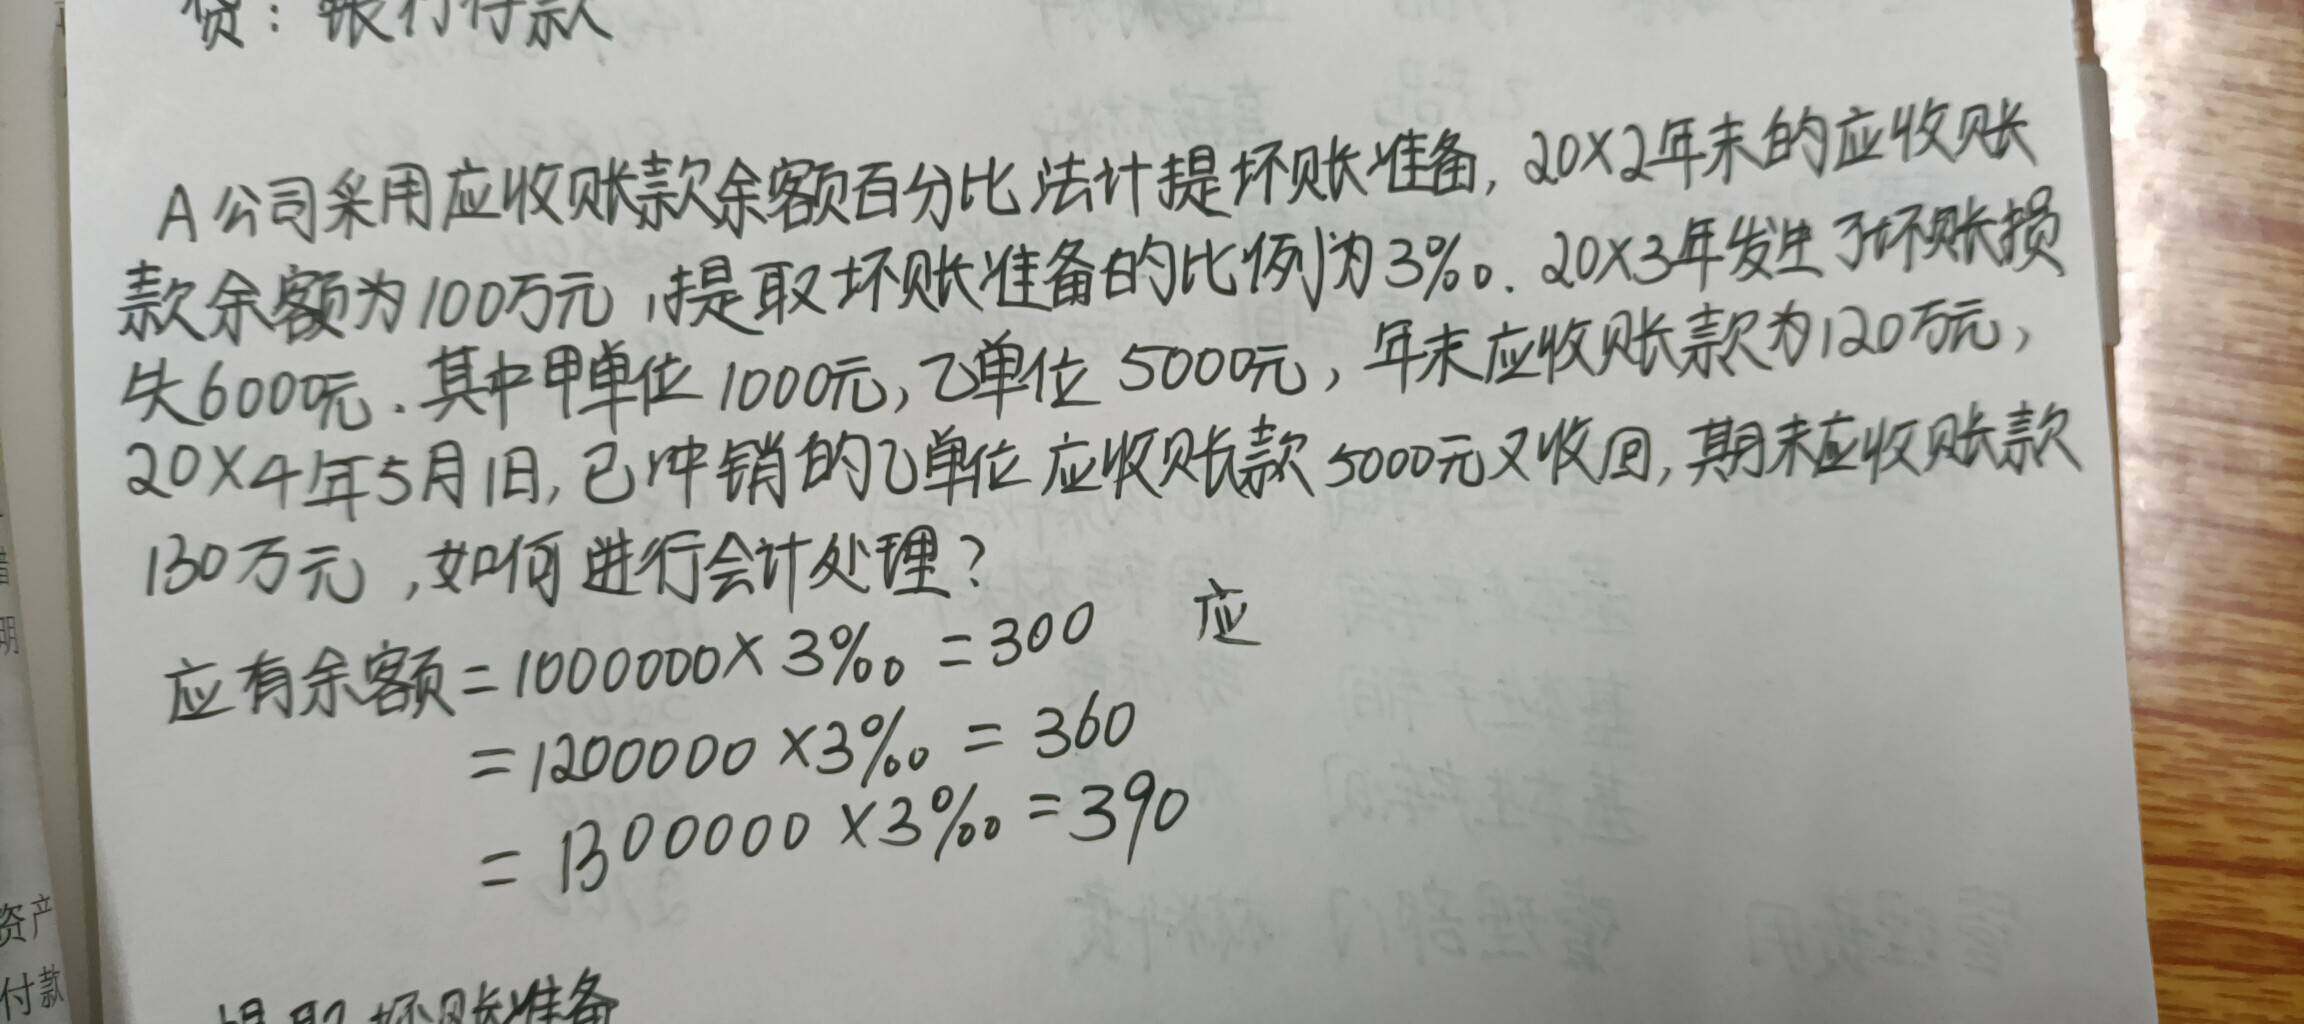 贷：银行存款
A公司采用应收账款余额百分比法计提坏账准备，20X2年末的应收账
款余额为100万元，提取坏账准备的比例为3‰. 20X3年发生了坏账损
失6000元.其中甲单位1000元，乙单位5000元，年末应收账款为120万元，
20X4年5月1日，已冲销的乙单位应收账款5000元又收回，期末应收账款
130万元，如何进行会计处理？
应有余额=1000000×3‰=300 应
=1200000×3‰=360
=1300000×3‰=390
提取坏账准备
资产
付款